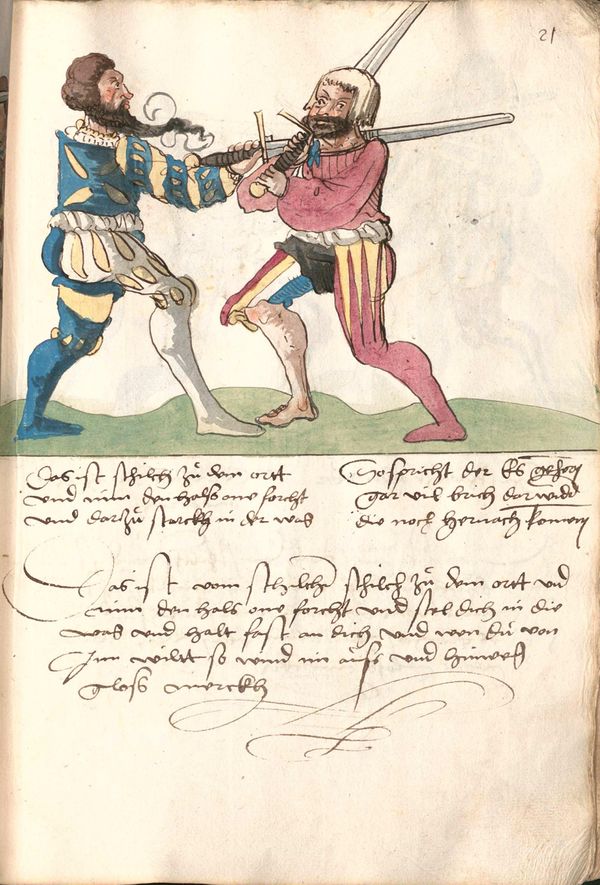 21
Das ist schilch zů dem ortt
und nim den halß one forcht
und darzů starckh in der was
So spricht der
gar vil brich darwider
die noch hernach komen
Das ist vom schilche schilch zů dem ortt und
nim den hals one forcht und stel dich in die
was und halt fast an dich und wen dů von
Im wiltt so wind im auss und hinweg
gloss merckh